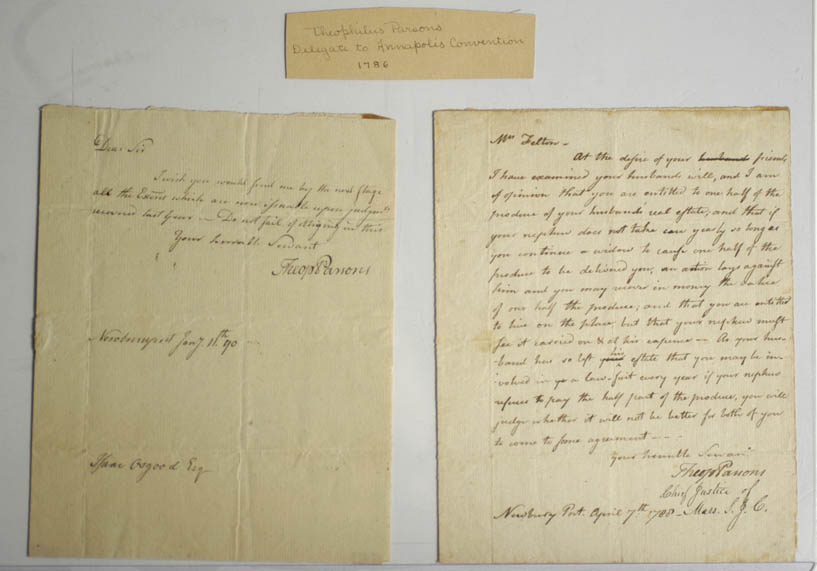 Theophilus Parsons
Delegate to Annapolis Convention
1786
Dear Sir
I wish you would send me by the next stage
all the Exons which are now issuable upon judgmts
recovered last Year — Do not fail of obliging in this
Your humble Servant
Theop Parsons
Newburyport Jany 11th 90
Isaac Osgood Esq
Mrs Felton —
At the desire of your husband friends
I have examined your husbands will, and I am
of opinion that you are entitled to one half of the
produce of your husbands real estate, and that if
your nephew does not take care yearly so long as
you continue a widow to cause one half of the
produce to be delivered you, an action lays against
him and you may recover in money the value
of one half the produce; and that you are entitled
to live on the place, but that your nephew must
see it carried on & at his expence — As your hus-
band has so left his estate that you may be in-
volved in a law-suit every year if your nephew
refuses to pay the half part of the produce, you will
judge whether it will not be better for both of you
to come to some agreement — —
Your humble Servan
Theop Parsons
Chief Justice of
Newbury Port. April 7th 1788 — Mass. S. J. C.